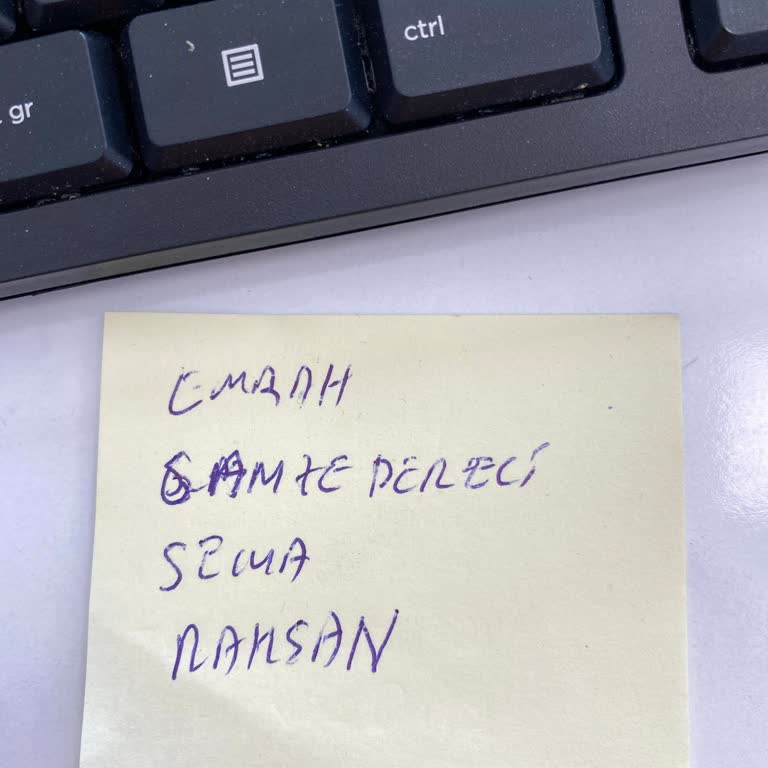 gr
ctrl
EMRAH
GAMZE DERECİ
SEMA
RAHSAN